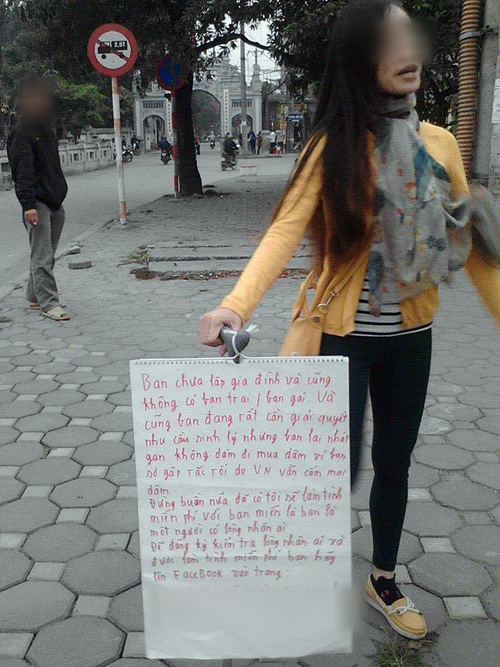 2,5T
Bạn chưa lập gia đình và cũng
không có bạn trai / bạn gái. Và
cũng bạn đang rất cần giải quyết
nhu cầu sinh lý nhưng bạn lại nhát
gan không dám đi mua dâm vì bạn
sợ gặp rắc rối do VN vẫn cấm mại
dâm.
Đừng buồn nữa đã có tôi sẽ làm tình
miễn phí với bạn miễn là bạn là
một người có lòng nhân ái.
Để đăng ký kiểm tra lòng nhân ái và
được làm tình miễn phí bạn hãy
lên FACEBOOK vào trang: